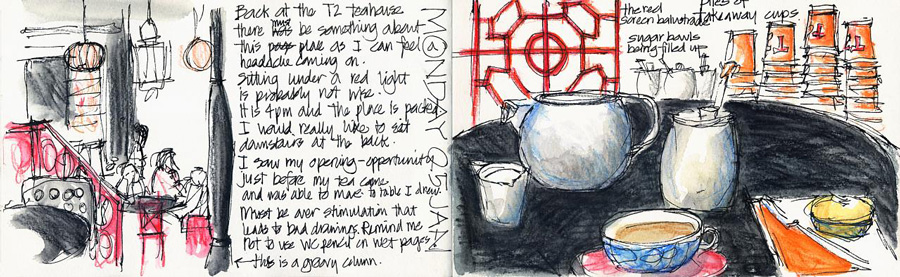 Back at the T2 teahouse
there must be something about
this place as I can feel
headache coming on.
Sitting under a red light
is probably not wise.
It is 4pm and the place is packed
I would really like to sit
downstairs at the back.
I saw my opening-opportunity
just before my tea came
and was able to move to table I drew.
Must be over stimulation that
leads to bad drawings. Remind me
not to use WC pencil on wet pages.
← this is a gravy column.
MONDAY 5 JAN
the red
screen balustrade
sugar bowls
being filled up
piles of
takeaway cups
T T T T